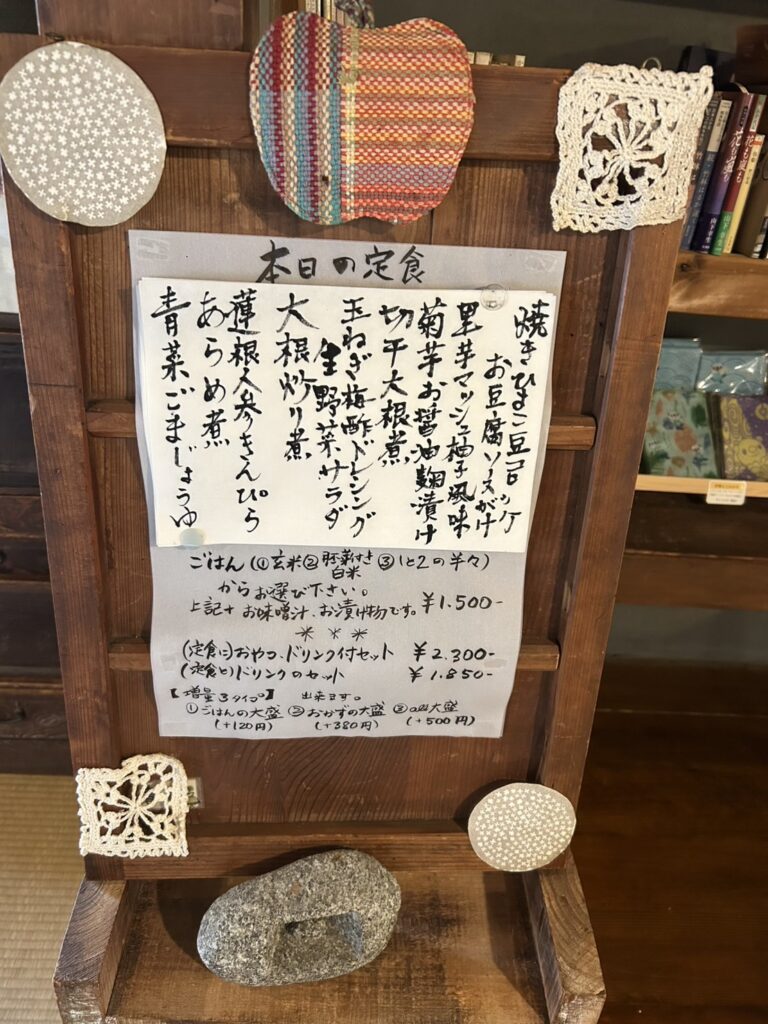 本日の定食
焼きひよこ豆コロッケ
お豆腐ソースがけ
里芋マッシュ柚子風味
菊芋お醤油麹漬け
切干大根煮
玉ねぎ梅酢ドレッシング
生野菜サラダ
大根炒り煮
蓮根人参きんぴら
あらめ煮
青菜ごまじょうゆ
ごはん(①玄米②胚芽付き白米③1と2の半々)
からお選び下さい。
上記+お味噌汁、お漬け物です。¥1.500-
***
(定食に)おやつ、ドリンク付セット ¥2.300-
(定食と)ドリンクのセット ¥1.850-
【増量3タイプ】 出来ます。
①ごはんの大盛 ②おかずの大盛 ③all大盛
(+120円) (+380円) (+500円)